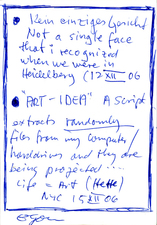 • Kein einziges Gesicht
Not a single face
that i recognized
when we were in
Heidelberg (12 XII 06
• "ART-IDEA" A script
extracts randomly
files from my computer/
harddrives and they are
being projected....
Life = Art (Hette)
NYC 15 XII 06